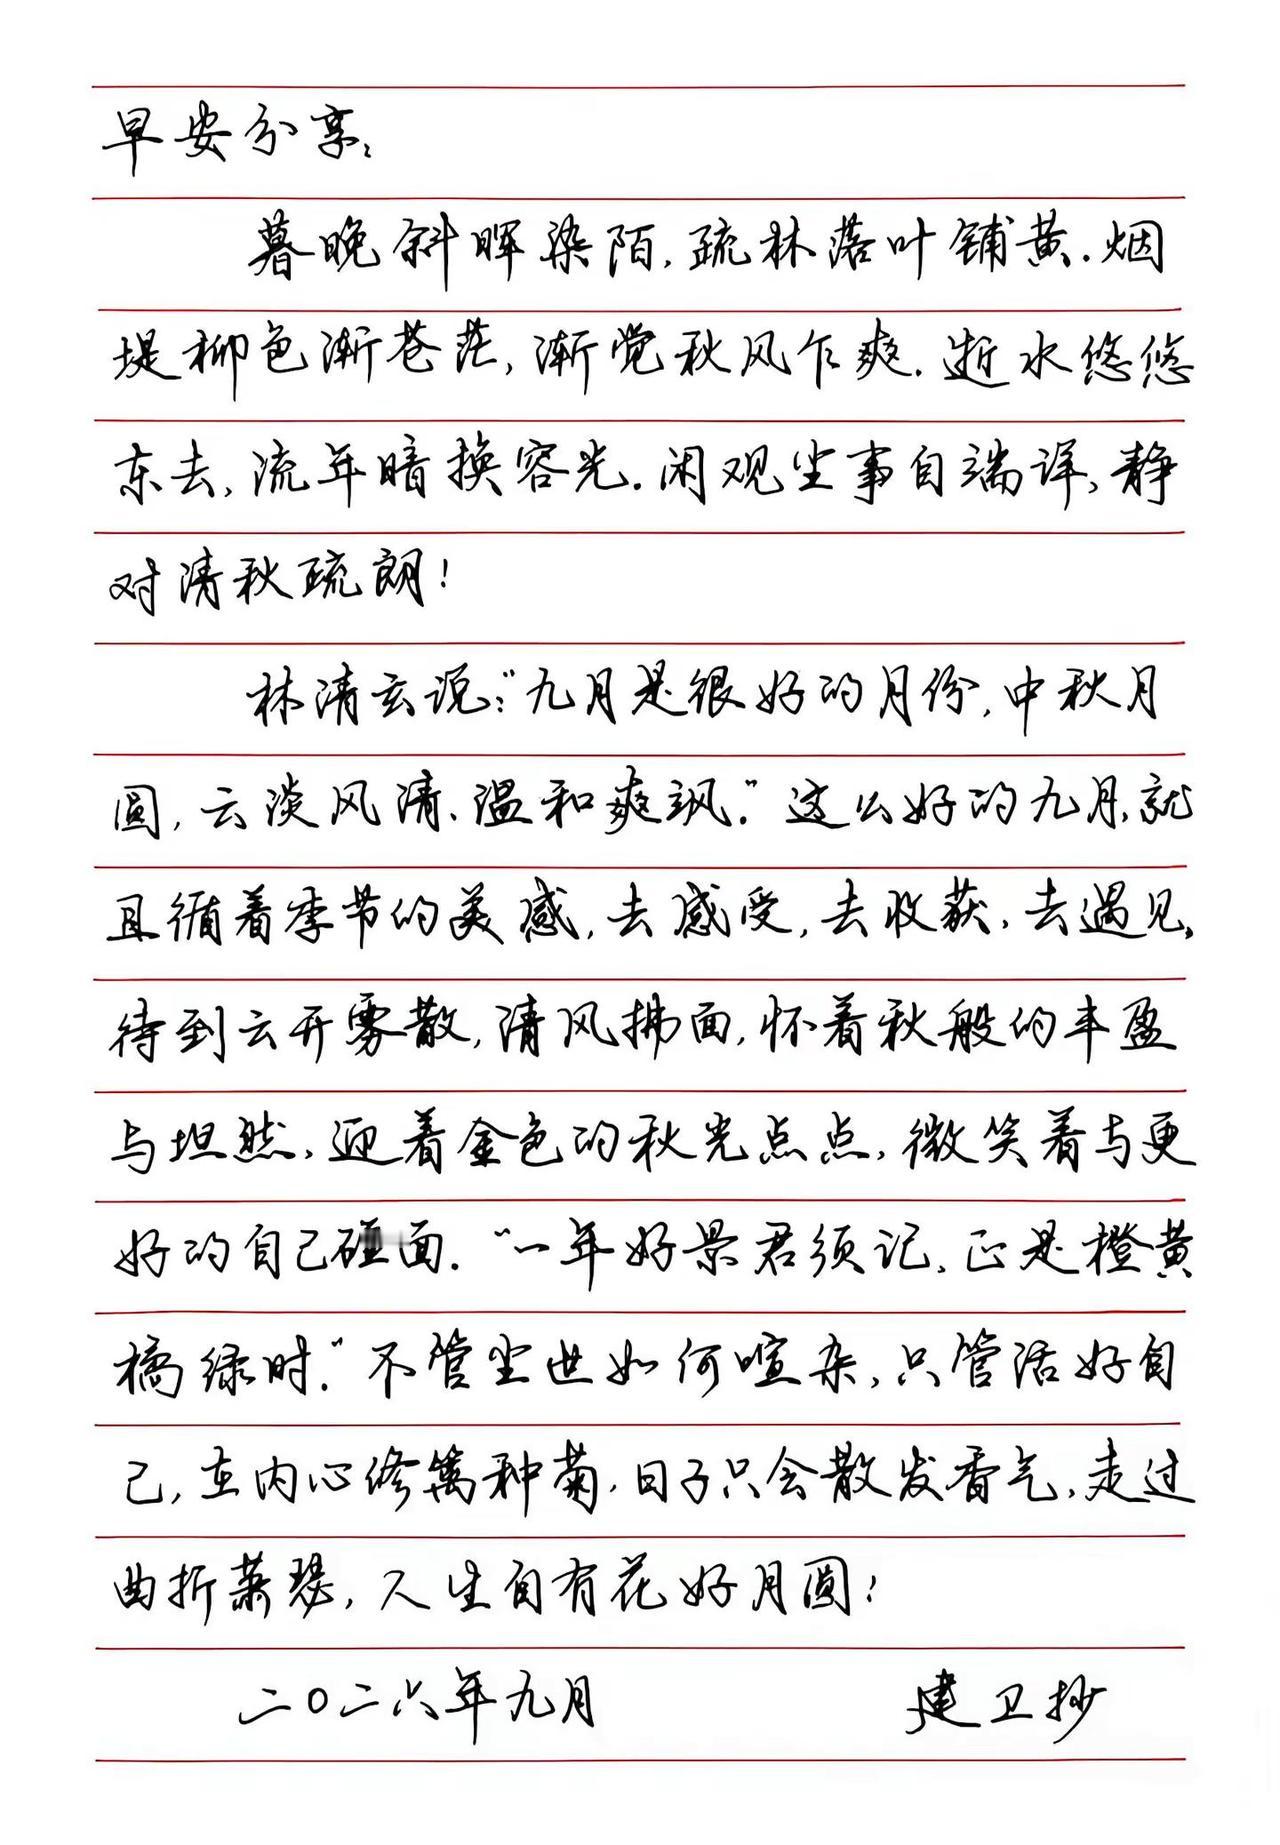 早安分享：
暮晚斜晖染陌，疏林落叶铺黄．烟
堤柳色渐苍茫，渐觉秋风乍爽．逝水悠悠
东去，流年暗换容光．闲观尘事自端详，静
对清秋疏朗！
林清玄说："九月是很好的月份，中秋月
圆，云淡风清、温和爽飒．"这么好的九月，就
且循着季节的美感，去感受，去收获，去遇见，
待到云开雾散，清风拂面，怀着秋般的丰盈
与坦然，迎着金色的秋光点点，微笑着与更
好的自己碰面．"一年好景君须记，正是橙黄
橘绿时．"不管尘世如何喧杂，只管活好自
己，在内心修篱种菊，日子只会散发香气，走过
曲折萧瑟，人生自有花好月圆！
二〇二六年九月 建卫抄